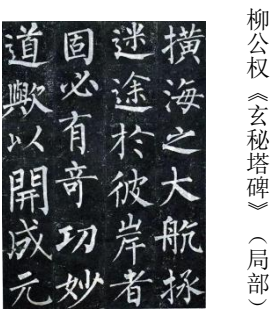 柳公权《玄秘塔碑》（局部）
橫海之大航拯
迷途於彼岸者
固必有奇功妙
道歟以開成元